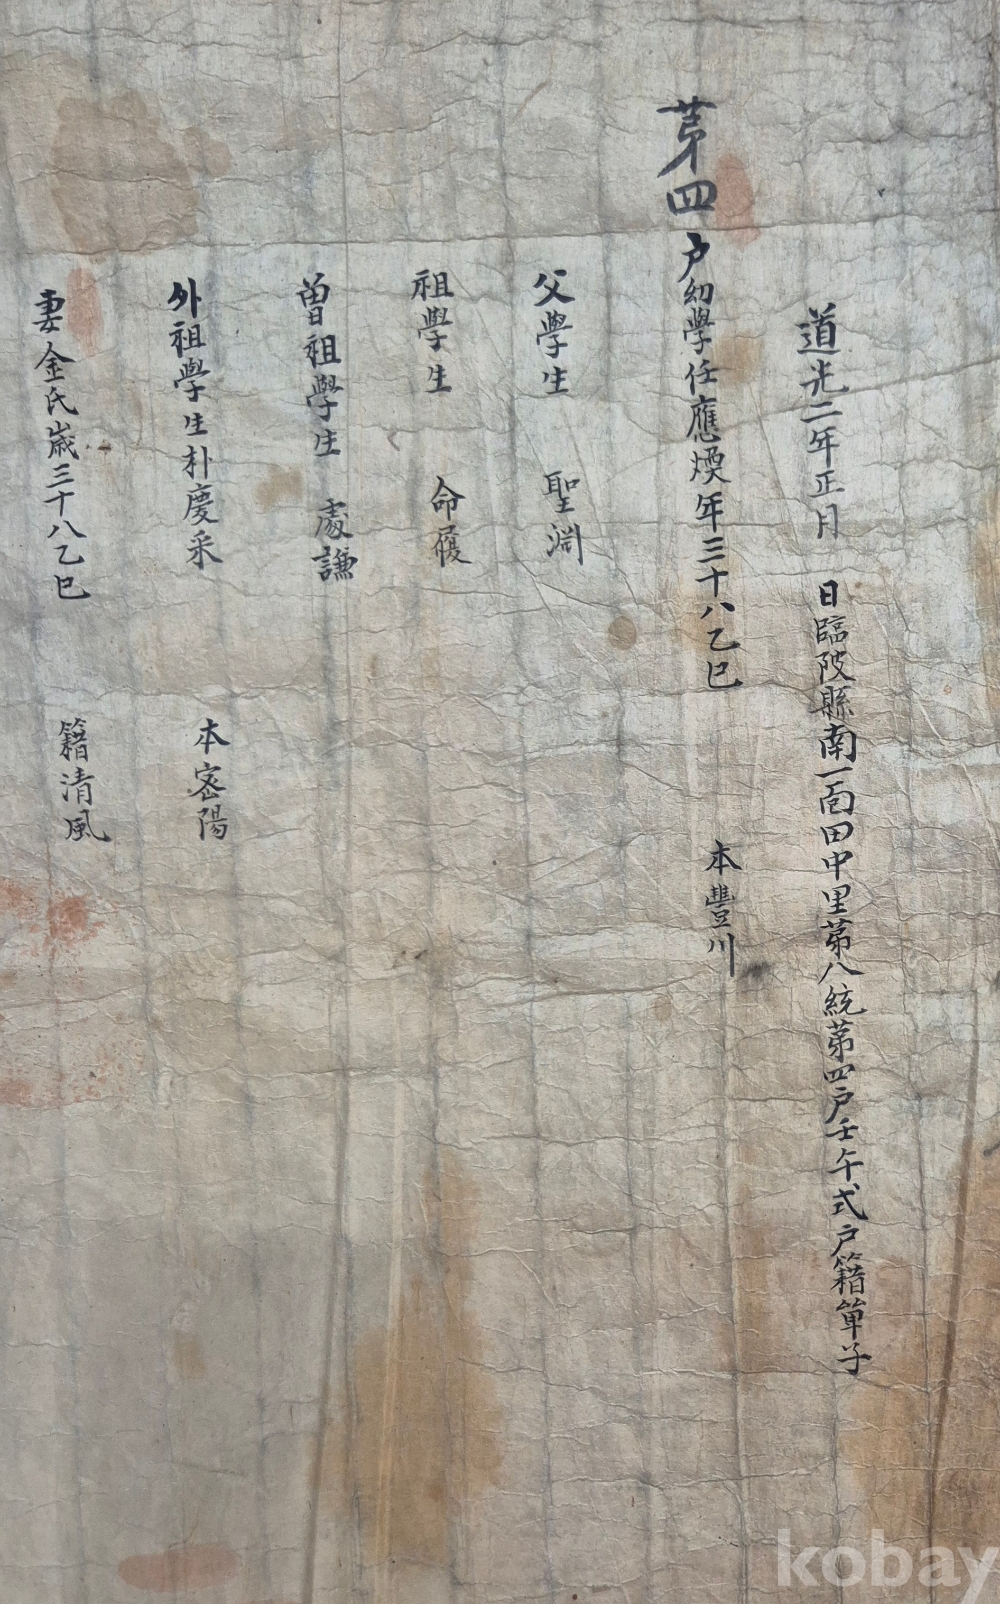 道光二年正月 日臨陂縣南一面田中里苐八統苐四户壬午式户籍單子
苐四户幼學任應煐年三十八乙巳 本豊川
父學生 聖淵
祖學生 命履
曽祖學生 處謙
外祖學生朴慶采 本密陽
妻金氏歲三十八乙巳 籍清風
kobay